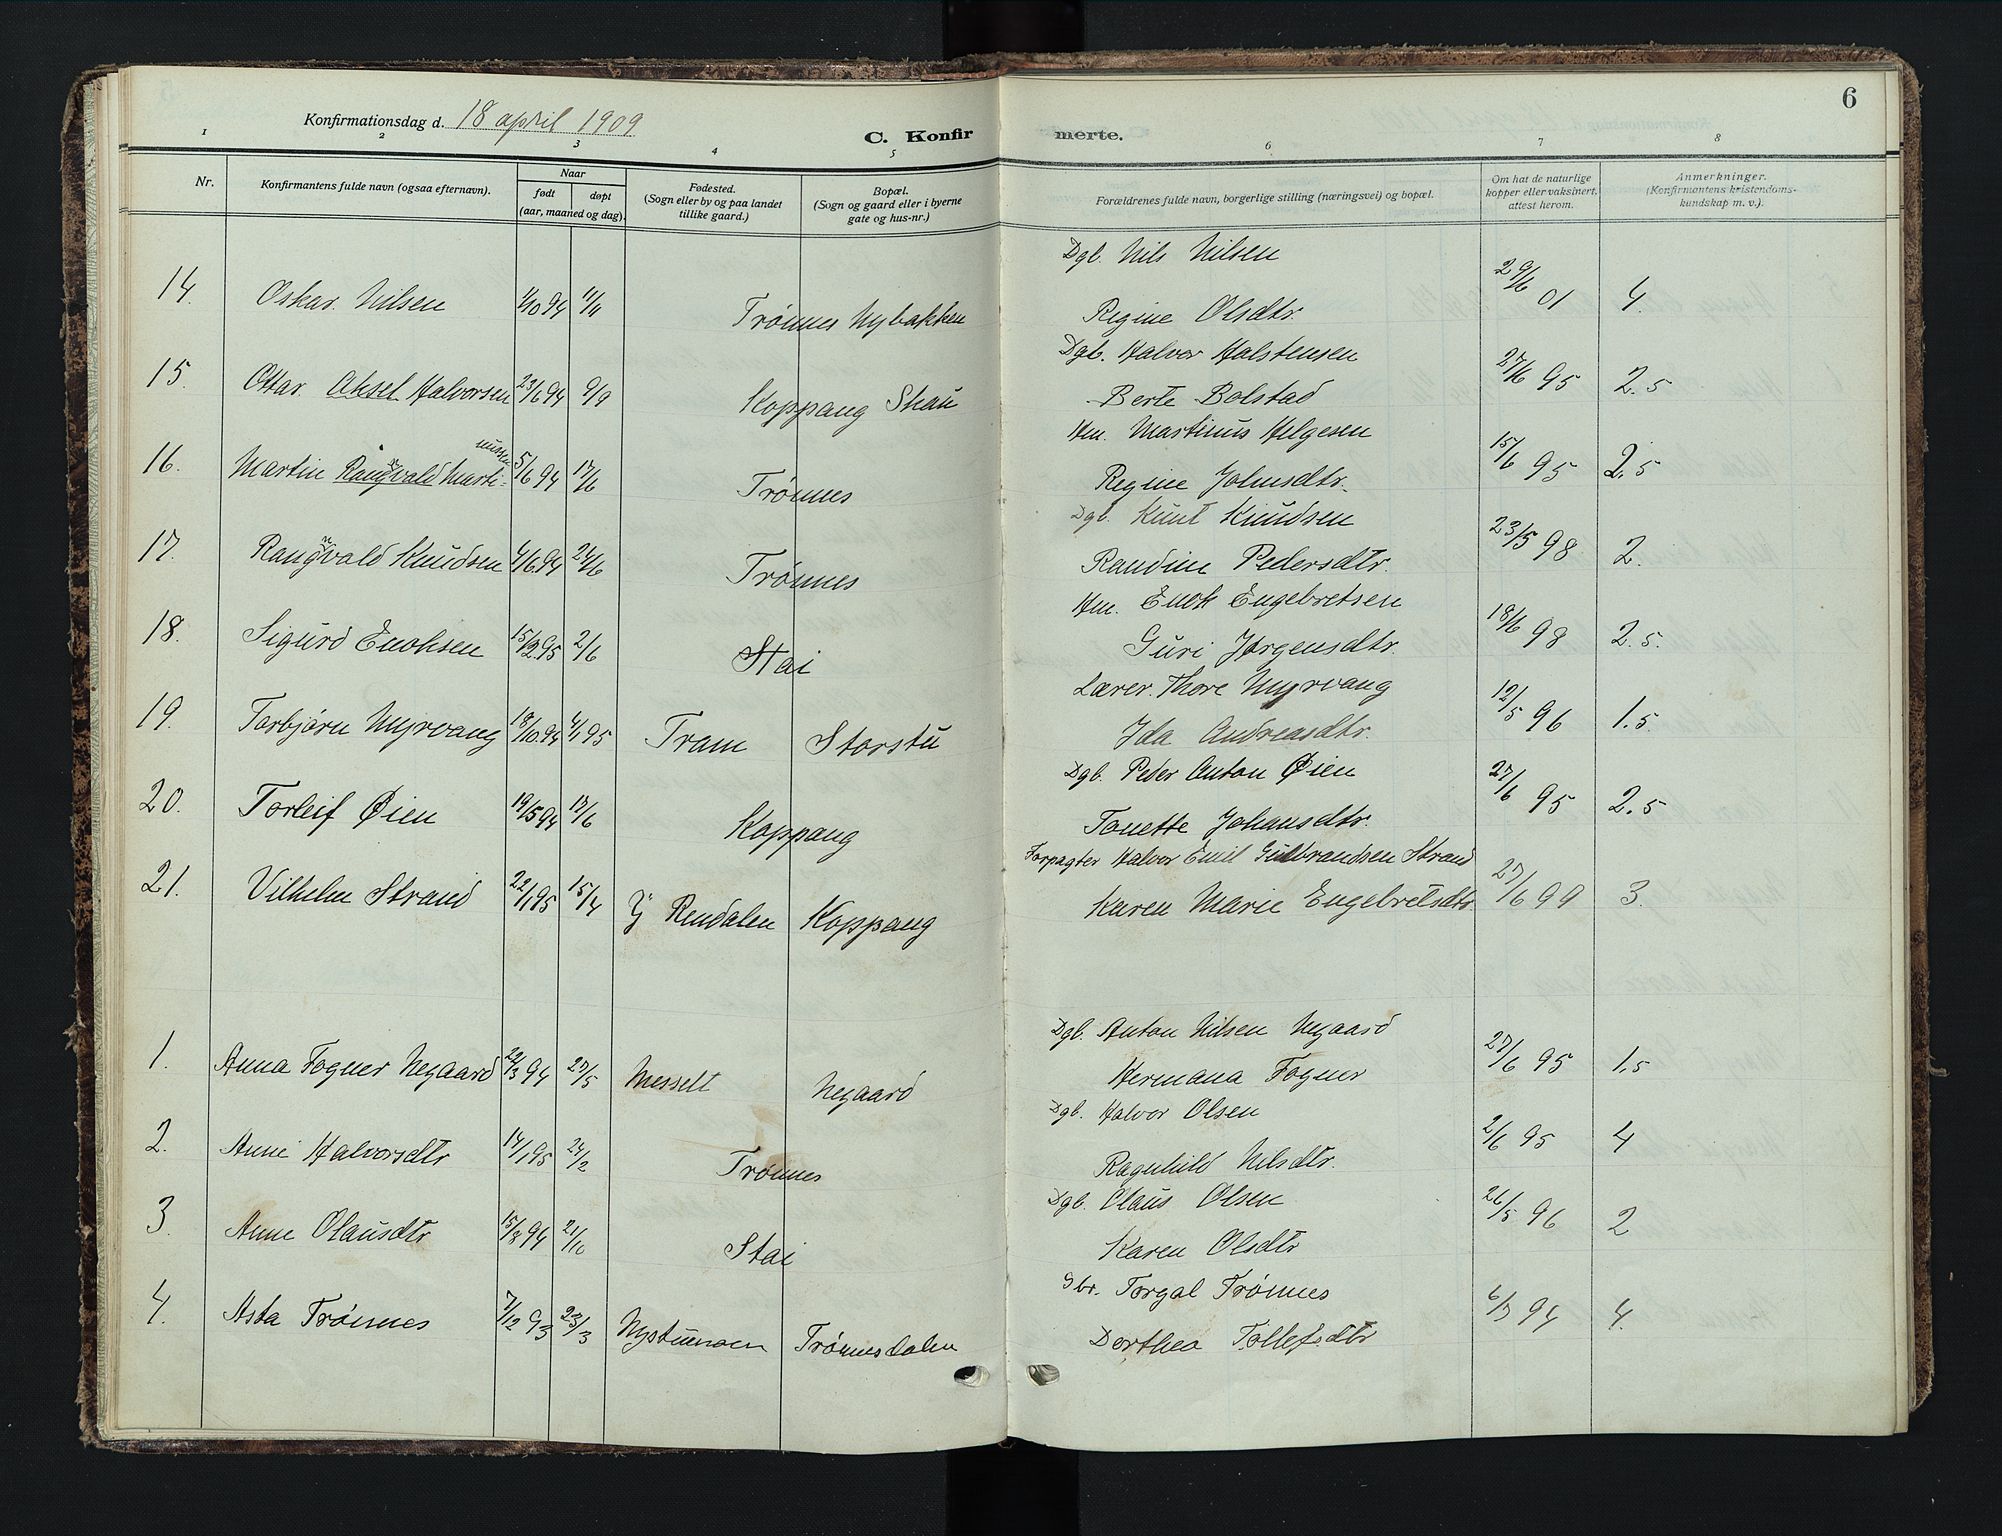 6
Konfirmationsdag d. 18 april 1909
C. Konfirmerte.
1 2 3 4 5 6 7 8
Nr. Konfirmantens fulde navn (ogsaa efternavn). Naar født døpt (aar, maaned og dag). Fødested. (Sogn eller by og paa landet tillike gaard.) Bopæl. (Sogn og gaard eller i byerne gate og hus-nr.) Forældrenes fulde navn, borgerlige stilling (næringsvei) og bopæl. Om hat de naturlige kopper eller vaksinert. attest herom. Anmerkninger. (Konfirmantens kristendoms-kundskap m. v.).
Dgb. Nils Nilsen
14. Oskar Nilsen 1/10 94 11/11 Trønnes Nybakken Regine Olsdtr. 29/6 01 4.
Dgb. Halvor Halstensen
15. Ottar Aksel Halvorsen 23/6 94 9/9 Koppang Skau Berte Bolstad 27/6 95 2.5
Hm. Martinus Helgesen
16. Martin Rangvald Martinussen 5/6 94 17/6 Trønnes Regine Johnsdtr. 15/6 95 2.5
Dgb. Knut Knudsen
17. Rangvald Knudsen 4/6 94 24/6 Trønnes Randine Pedersdtr. 23/5 98 2.
Hm. Enok Engebretsen
18. Sigurd Enoksen 15/2 95 2/6 Stai Guri Jørgensdtr. 18/6 98 2.5.
Lærer. Thore Myrvang
19. Torbjørn Myrvang 18/10 94 4/1 95 Tram Storstu Ida Andreasdtr. 12/5 96 1.5
Dgb. Peder Anton Øien
20. Torleif Øien 19/5 94 17/6 Koppang Tonette Johansdtr. 27/6 95 2.5
Forpagter Halvor Emil Gulbrandsen Strand
21. Vilhelm Strand 22/1 95 15/4 Y Rendalen Koppang Karen Marie Engebretsdtr 27/6 99 3.
Dgb. Anton Nilsen Negaard
1. Anna Fogner Negaard 22/3 94 27/5 Messelt Negaard Hermana Fogner 27/6 95 1.5
Dgb. Halvor Olsen
2. Anne Halvorsdtr 14/1 95 24/2 Trønnes Ragnhild Nilsdtr. 2/6 95 4
Dgb. Olaus Olsen
3. Anne Olausdtr 15/8 94 21/10 Stai Karen Olsdtr 26/5 96 2
Gbr. Torgal Trønnes
4. Asta Trønnes 7/12 93 23/3 Nystumoen Trønnesdalen Dorthea Tollefsdtr 94 4.